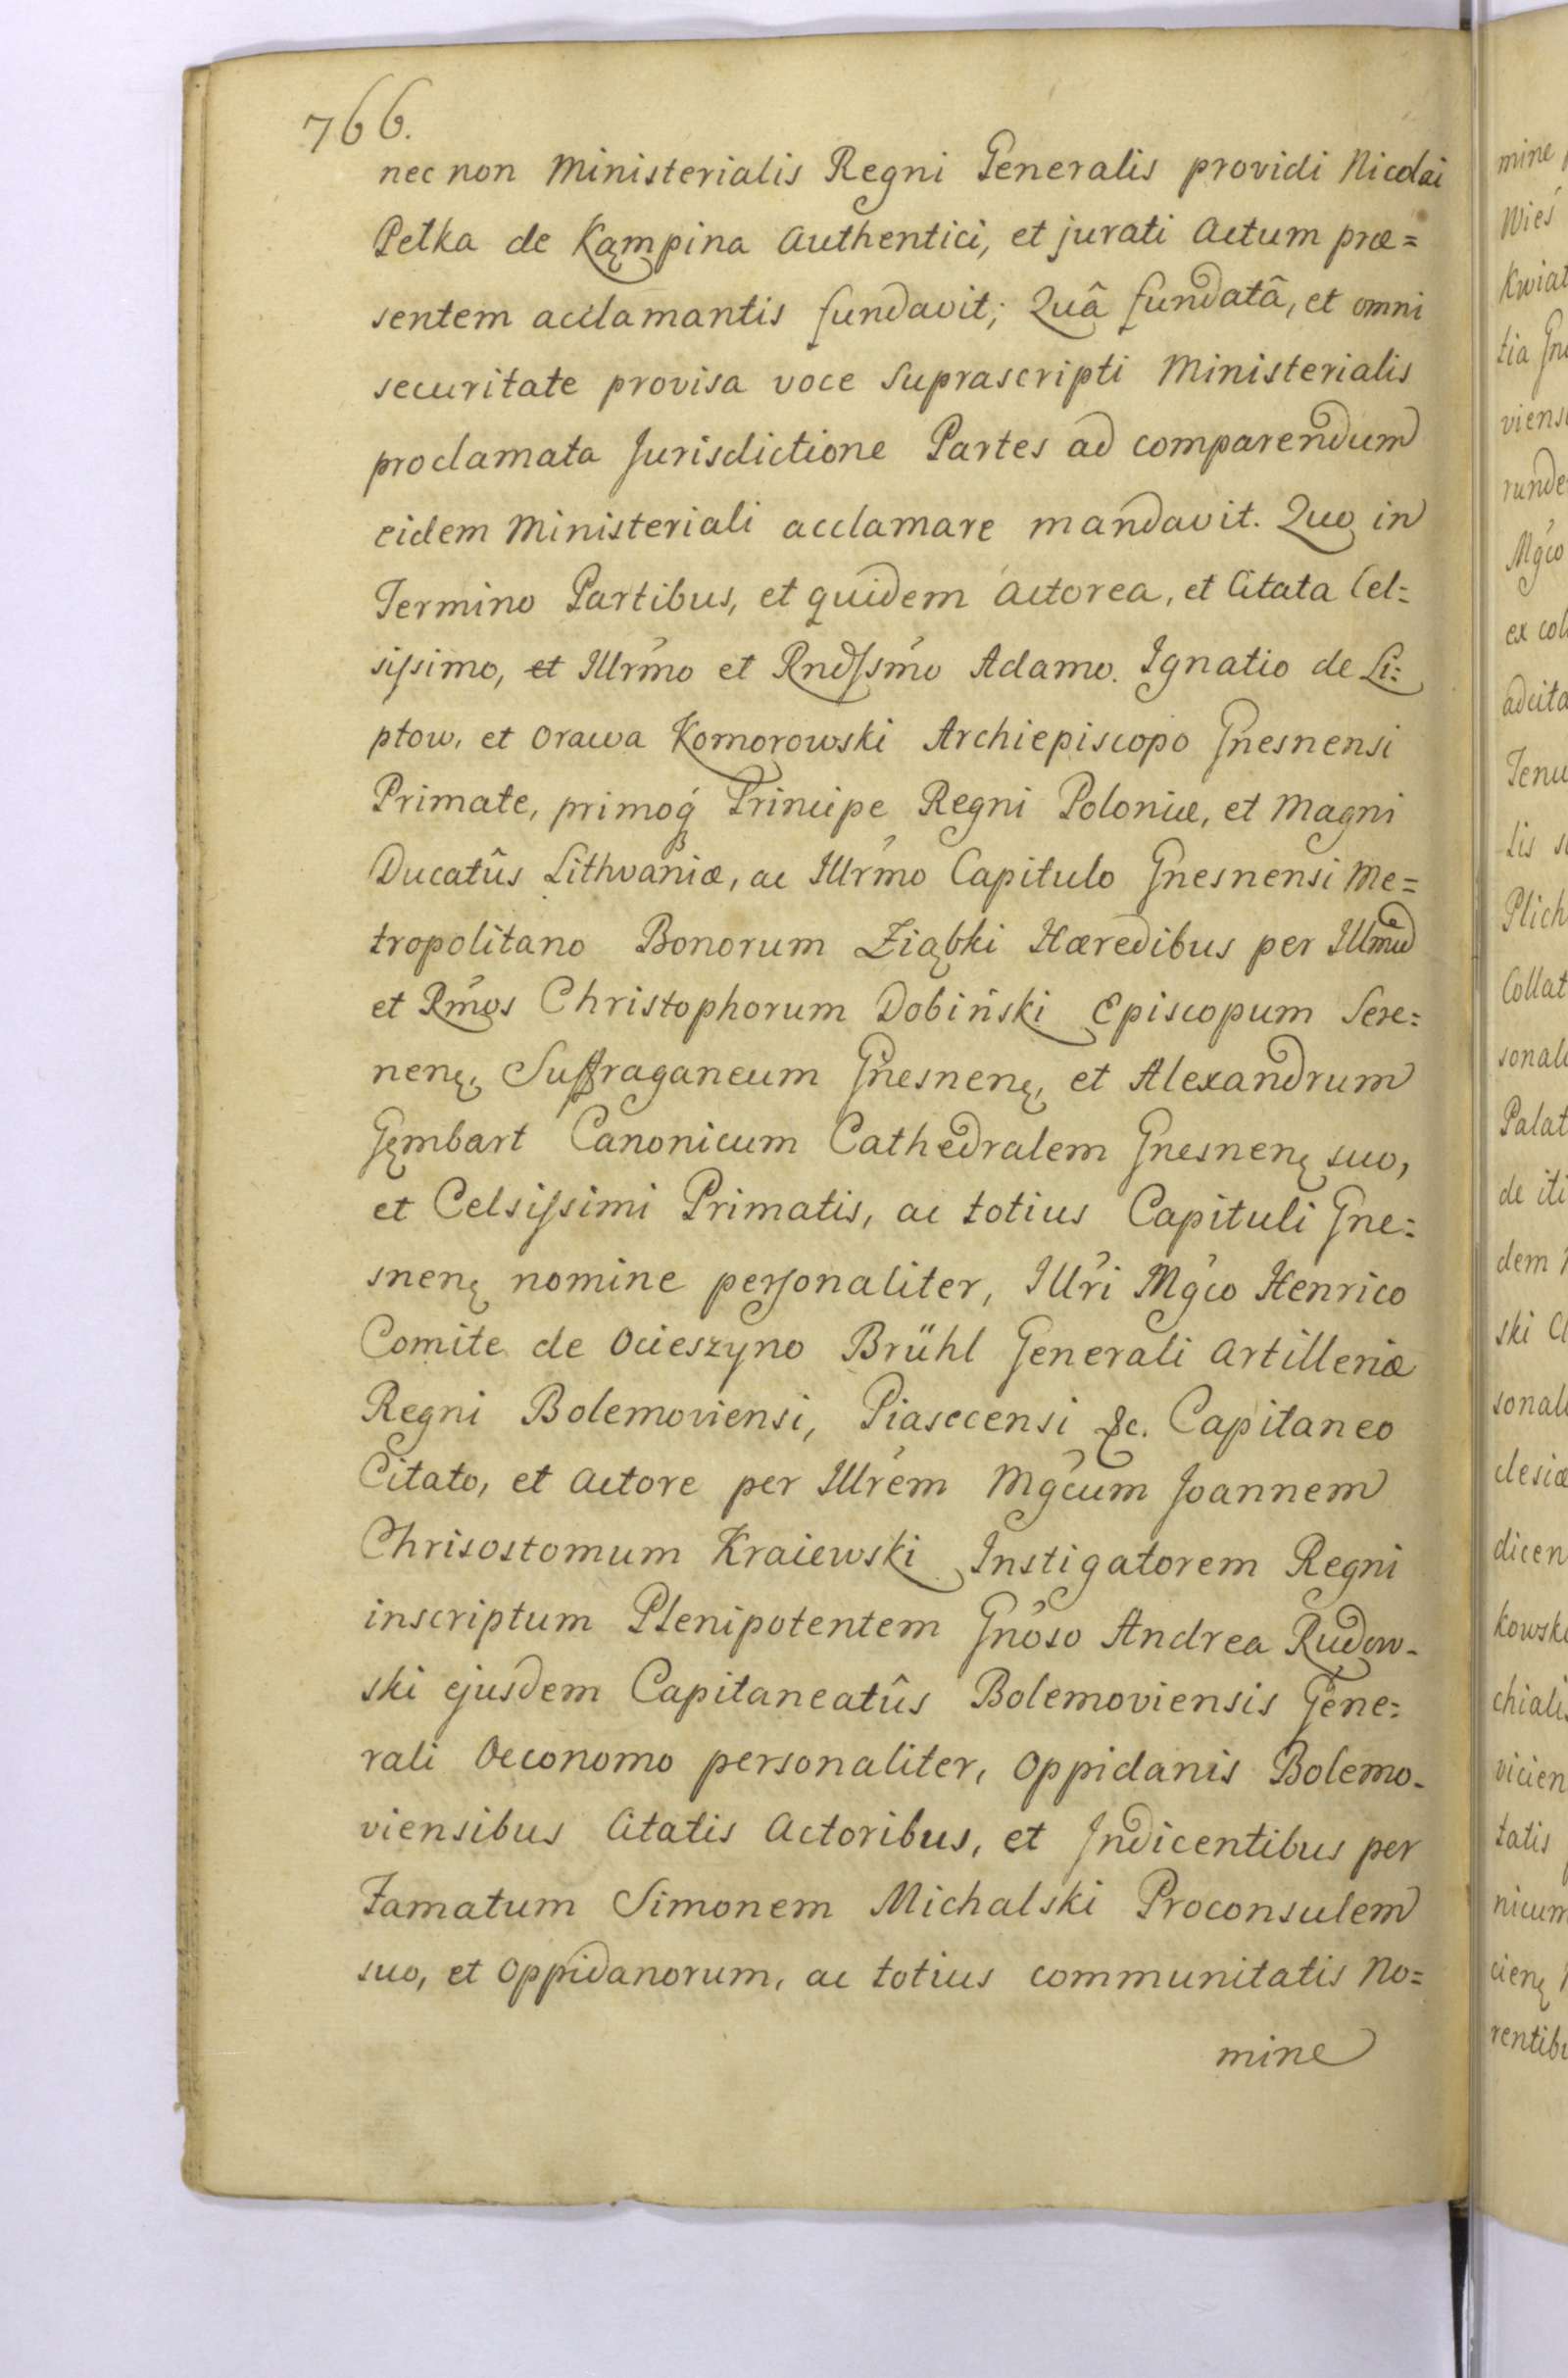 766.
nec non Ministerialis Regni Generalis providi Nicolai
Petka de Kąmpina Authentici, et jurati Actum præ=
sentem acclamantis fundavit; Quâ fundatâ, et omni
securitate provisa voce suprascripti Ministerialis
proclamata Jurisdictione Partes ad comparendum
eidem Ministeriali acclamare mandavit. Quo in
Termino Partibus, et quidem Actorea, et Citata Cel=
sissimo, et Illrmo et Rndssmo Adamo. Ignatio de Li=
ptow, et Orawa Komorowski Archiepiscopo Gnesnensi
Primate, primoq́ Principe Regni Poloniæ, et Magni
Ducatûs Lithvaniæ, ac Illrmo Capitulo Gnesnensi Me=
tropolitano Bonorum Ziąbki Hæredibus per Illmũ
et Rmos Christophorum Dobiński Episcopum Sere=
nenę, Suffraganeum Gnesnenę, et Alexandrum
Gęmbart Canonicum Cathedralem Gnesnenę suo,
et Celsissimi Primatis, ac totius Capituli Gne=
snenę nomine personaliter, Illri Mgco Henrico
Comite de Ocieszyno Brühl Generali Artilleriæ
Regni Bolemoviensi, Piasecensi &c. Capitaneo
Citato, et Actore per Illrem Mgcum Joannem
Chrisostomum Kraiewski Instigatorem Regni
inscriptum Plenipotentem Gnoso Andrea Rudow-
ski ejusdem Capitaneatûs Bolemoviensis Gene=
rali Oeconomo personaliter, Oppidanis Bolemo-
viensibus Citatis Actoribus, et Indicentibus per
Famatum Simonem Michalski Proconsulem
suo, et Oppidanorum, ac totius communitatis No=
mine
mine
Wieś
Kwiat
tia Gn
viens
runde
Mgco
ex col
adcita
Tenu
lis
Plich
Collat
sonal
Palat
de iti
dem
ski
sonal
clesiæ
dicen
kowsk
chialis
vicien
tatis
nicum
cienę
rentib